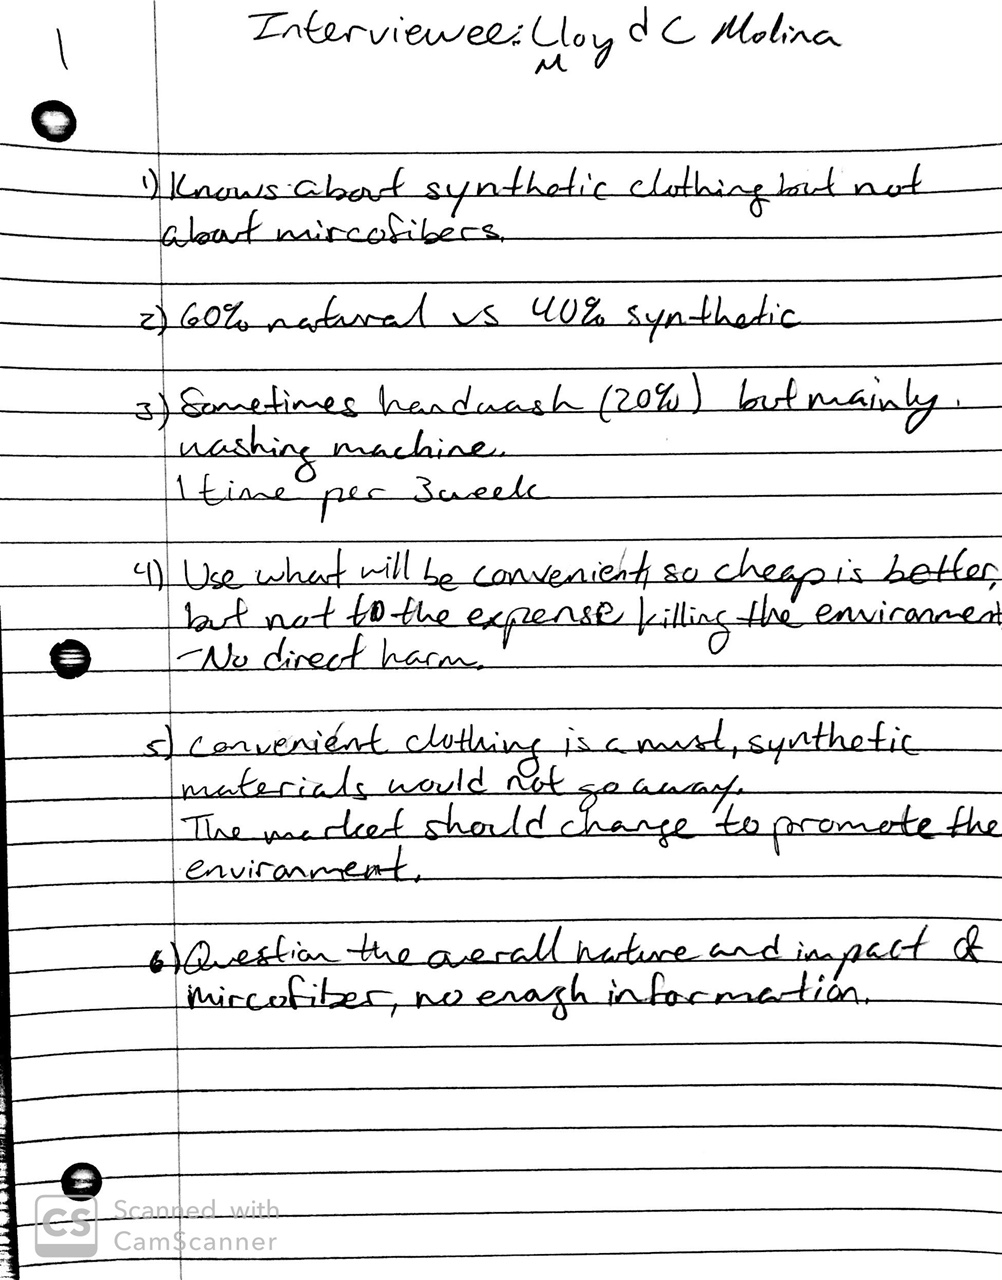 1
Interviewee: Lloyd C Molina
M
1) Knows about synthetic clothing but not
about mircofibers.
2) 60% natural vs 40% synthetic
3) Sometimes handwash (20%) but mainly
washing machine.
1 time per 3 week
4) Use what will be convenient, so cheap is better,
but not to the expense killing the environment
- No direct harm.
5) Convenient clothing is a must, synthetic
materials would not go away.
The market should change to promote the
environment.
6) Question the overall nature and impact of
mircofiber, no enough information.
CS
Scanned with
CamScanner